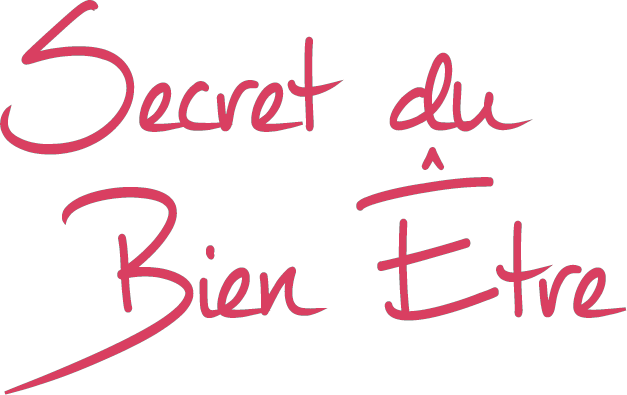 Secret du
Bien Être